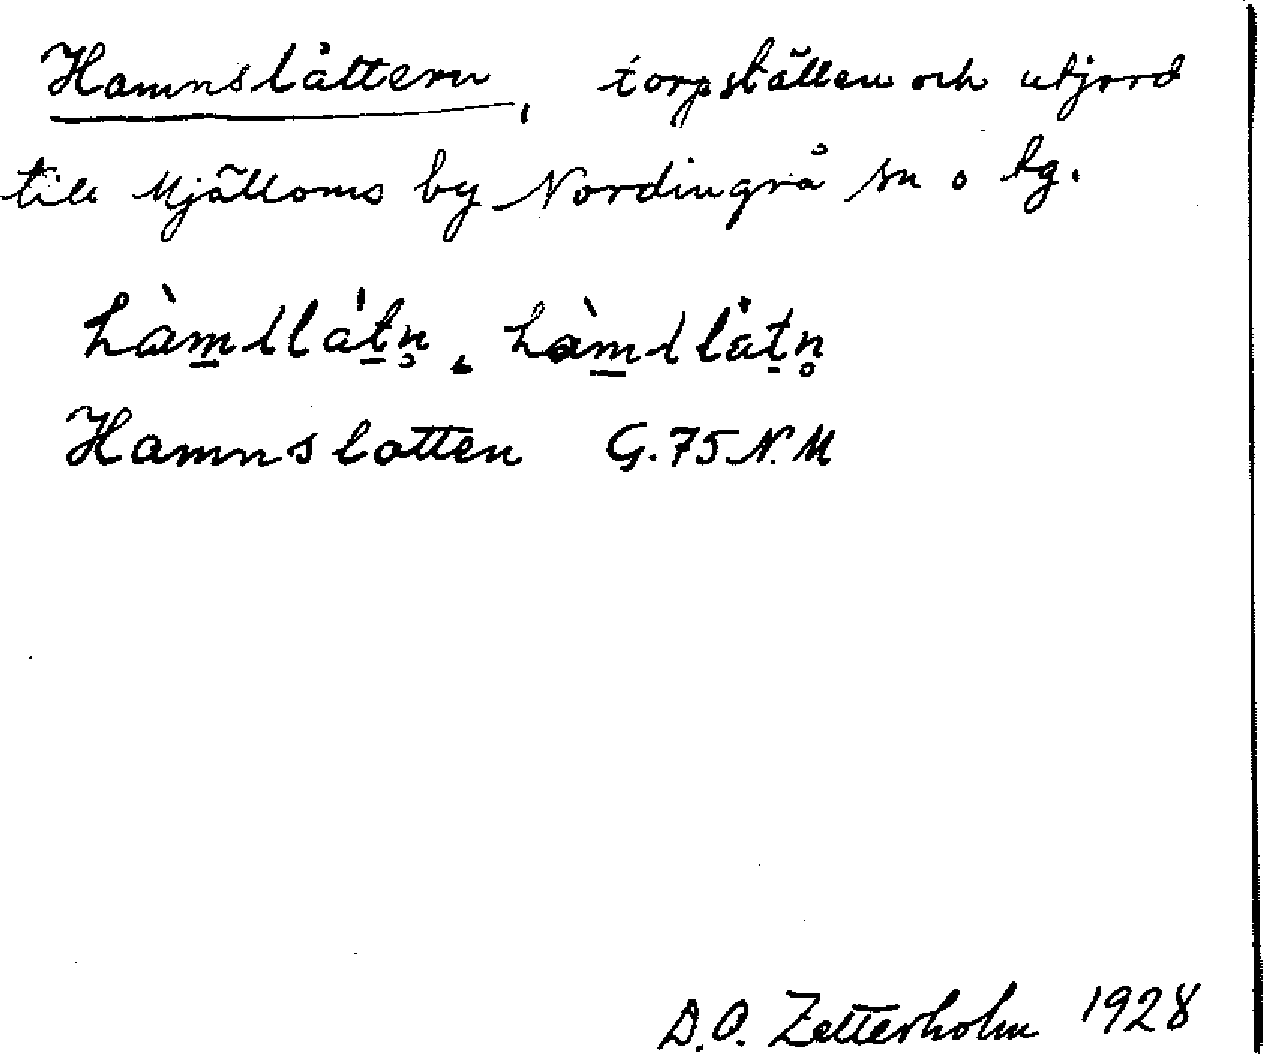 Hamnslåttern, torpställen och utjord
till Mjälloms by Nordingrå sn o tg.
hàm̲llát̲n̥, hàm̲llåt̲n̥
Hamnslotten G.75 N.M
D.O. Zetterholm 1928